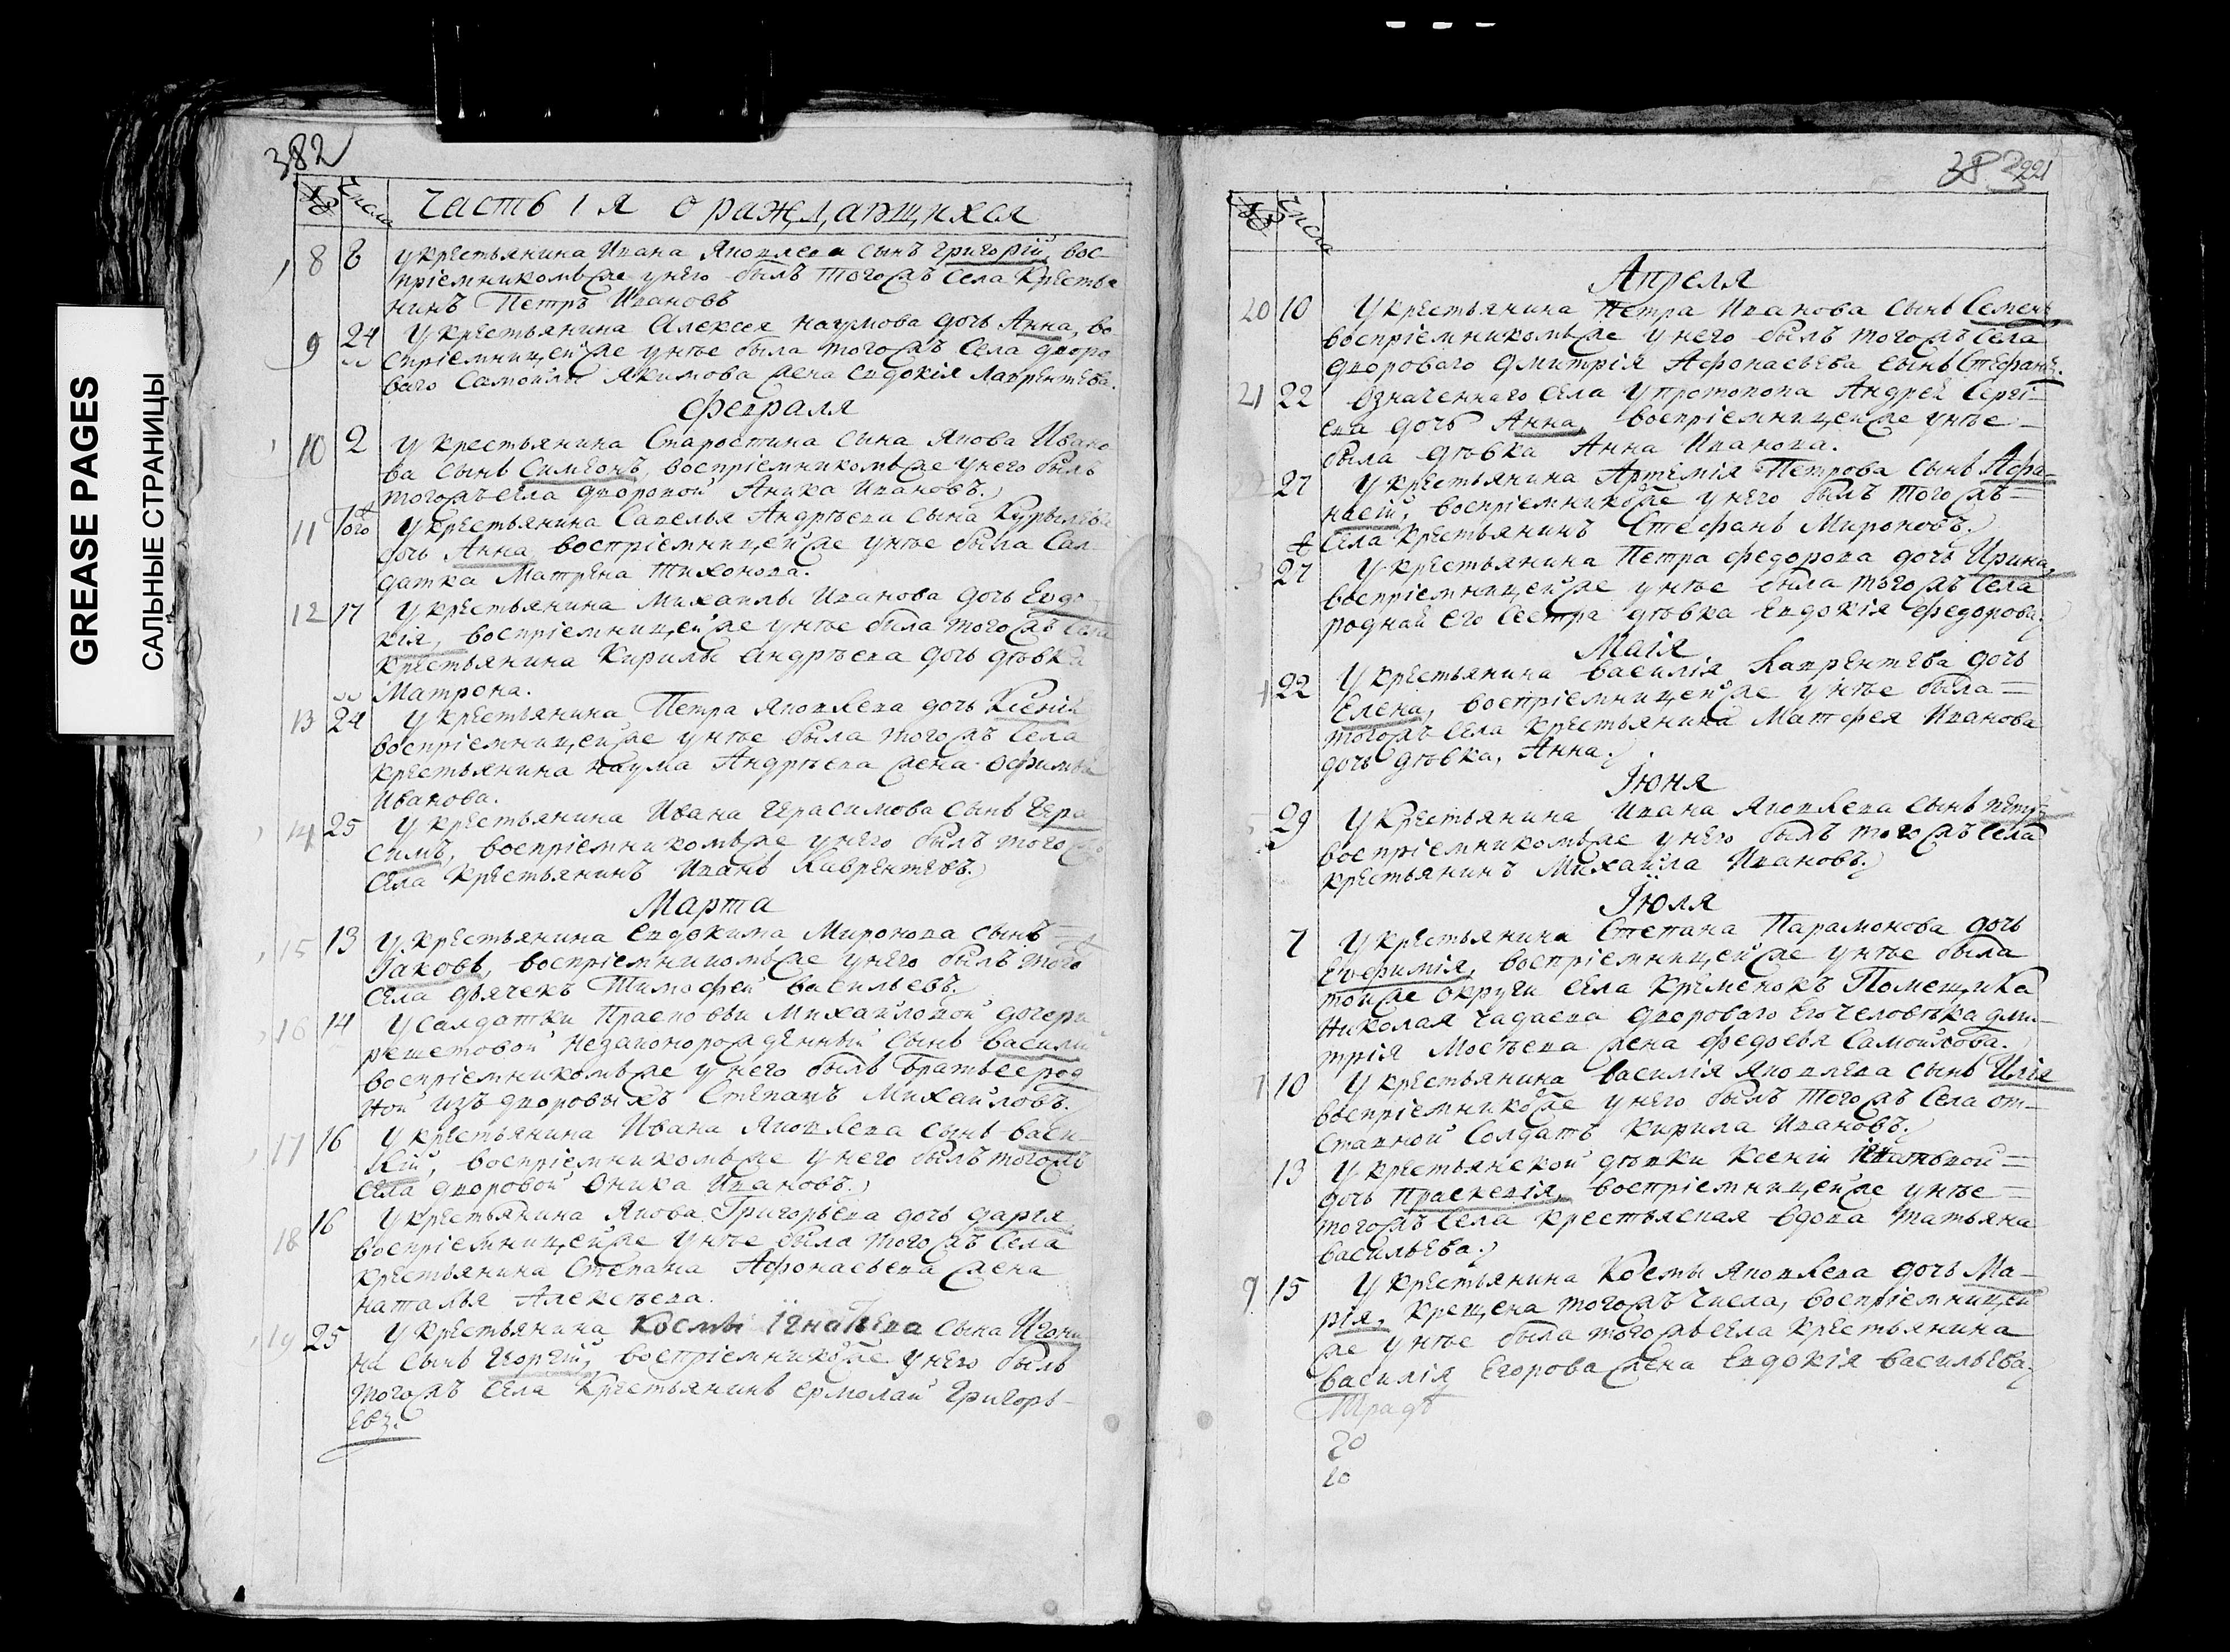 GREASE PAGES
САЛЬНЫЕ СТРАНИЦЫ
382
№ Числа Часть 1я о раждающихся
8 8 у крестьянина Ивана Яковлева сынъ Григорій, вос-
пріемникомъ же у него былъ тогожъ села крестья
нинъ Петръ Ивановъ
9 24 У крестьянина Алексея Наумова дочь Анна, во
спріемницей же у нѣе была тогожъ села дворо
ваго Самойлы Якимова жена Евдокія Лаврентьева.
Февраля
10 2 У крестьянина Старостина сына Якова Ивано
ва сынъ Симеонъ, воспріемникомъ же у него былъ
тогожъ села дворовой Аника Ивановъ.
11 Того У крестьянина Савелья Андрѣева сына
дочь Анна, воспріемницей же у нѣе была Сал
датка Матрена Тихонова.
12 17 У крестьянина Михаилы Иванова дочь Евдо
кія, воспріемницей же у нѣе была тогожъ села
крестьянина Кирилы Андрѣева дочь дѣвка
Матрона.
13 24 У крестьянина Петра Яковлева дочь Ксенія
воспріемницей же у нѣе была тогожъ села
крестьянина Наума Андрѣева жена Офимья
Иванова.
14 25 У крестьянина Ивана Герасимова сынъ Гера
симъ, воспріемникомъ же у него былъ того
села крестьянинъ Иванъ Лаврентевъ.
Марта
15 13 У крестьянина Евдокима Миронова сынъ
Іаковъ, воспріемникомъ же у него былъ того
села дьячекъ Тимофей Васильевъ.
16 14 У салдатки Прасковьи Михайловой дочери
решетовой незаконорожденный сынъ Василій
воспріемникомъ же у него былъ братъ ее род
ной изъ дворовыхъ Степанъ Михайловъ.
17 16 У крестьянина Ивана Яковлева сынъ Васи
лій, воспріемникомъ же у него былъ тогожъ
села дворовой Оника Ивановъ.
18 16 У крестьянина Якова Григорьева дочь Дарія
воспріемницей же у нѣе была тогожъ села
крестьянина Степана Афонасьева жена
Наталья Алексѣева.
19 25 У крестьянина Космы Игнатьева сына
на сынъ Георгій, воспріемникомже у него былъ
тогожъ села крестьянинъ Ермолай Григорь-
евъ.
383
221
№ Числа
Апреля
20 10 У крестьянина Петра Иванова сынъ Семенъ
воспріемникомъ же у него былъ тогожъ села
двороваго Дмитрія Афонасьева сынъ Стефанъ.
21 22 Означеннаго села у протопопа Андрея Сергі-
ева дочь Анна, воспріемницей же у нѣе
была дѣвка Анна Иванова.
2 27 У крестьянина Артемія Петрова сынъ Афа-
насій, воспріемникомже у него былъ тогожъ
села крестьянинъ Стефанъ Мироновъ.
3 27 У крестьянина Петра Федорова дочь Ирина,
воспріемницей же у нѣе была тогожъ села
родная его сестра дѣвка Евдокія Федорова.
Маія
4 22 У крестьянина Василія Лаврентева дочь
Елена, воспріемницей же у нѣе была
тогожъ села крестьянина Матфея Иванова
дочь дѣвка, Анна.
Іюня
5 29 У крестьянина Ивана Яковлева сынъ Петръ
воспріемникомъ же у него былъ тогожъ села
крестьянинъ Михайла Ивановъ.
Іюля
7 У крестьянина Степана Парамонова дочь
Евфимія, воспріемницей же у нѣе была
тойже округи села Кременокъ Помещика
Николая Чадаева двороваго его человѣка Дми-
трія Мосѣева жена Федосья Самойлова.
7 10 У крестьянина Василія Яковлева сынъ Илія
воспріемникомже у него былъ тогожъ села от-
ставной солдатъ Кирила Ивановъ.
13 У крестьянской дѣвки Ксеніи
дочь Праскевія, воспріемницей же у нѣе
тогожъ села крестьяская вдова Татьяна
Васильева.
9 15 У крестьянина Космы Яковлева дочь Ма-
рія, крещена тогожъ числа, воспріемницей
же у нѣе была тогожъ села крестьянина
Василія Егорова жена Евдокія Васильева
20
20